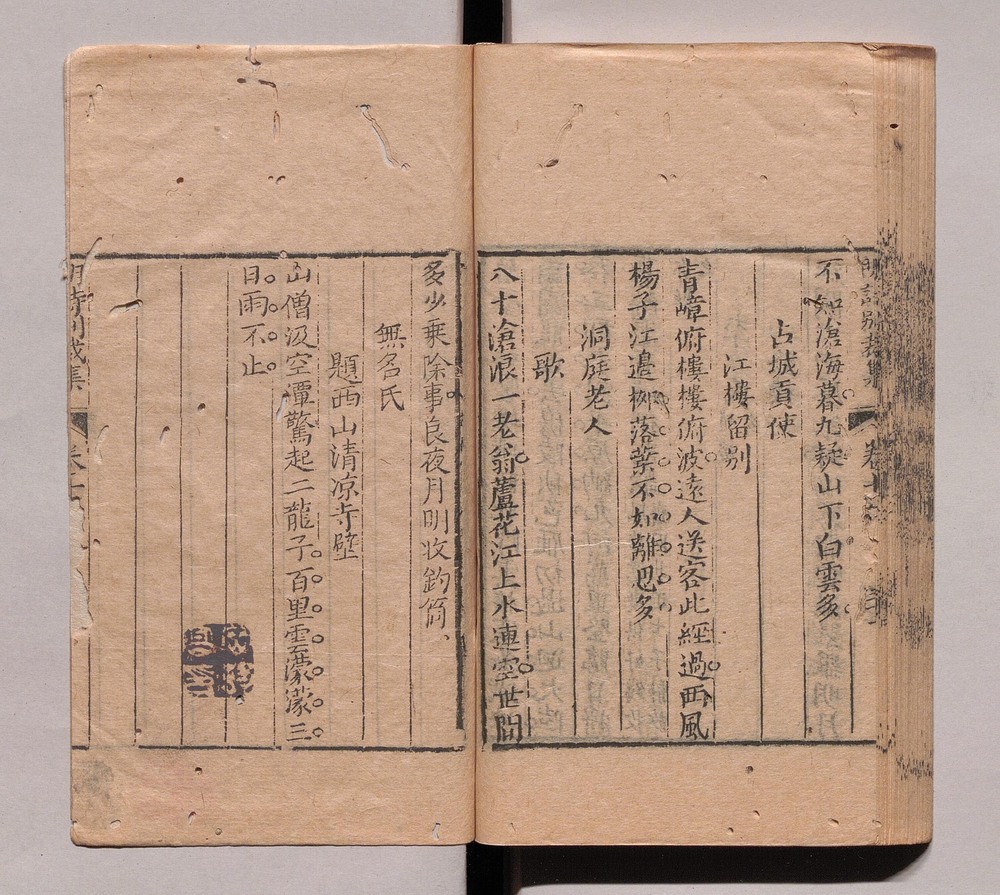 明詩別裁集
卷十
不知滄海暮九疑山下白雲多
占城貢使
江樓留别
青嶂俯樓樓俯波遠人送客此經過西風
楊子江邊栁落葉不如離思多
洞庭老人
歌
八十滄浪一老翁蘆花江上水連空世間
多少乘除事良夜月明收釣筒
無名氏
題西山清凉寺壁
山僧汲空潭驚起二龍子百里雲濛濛三
日雨不止